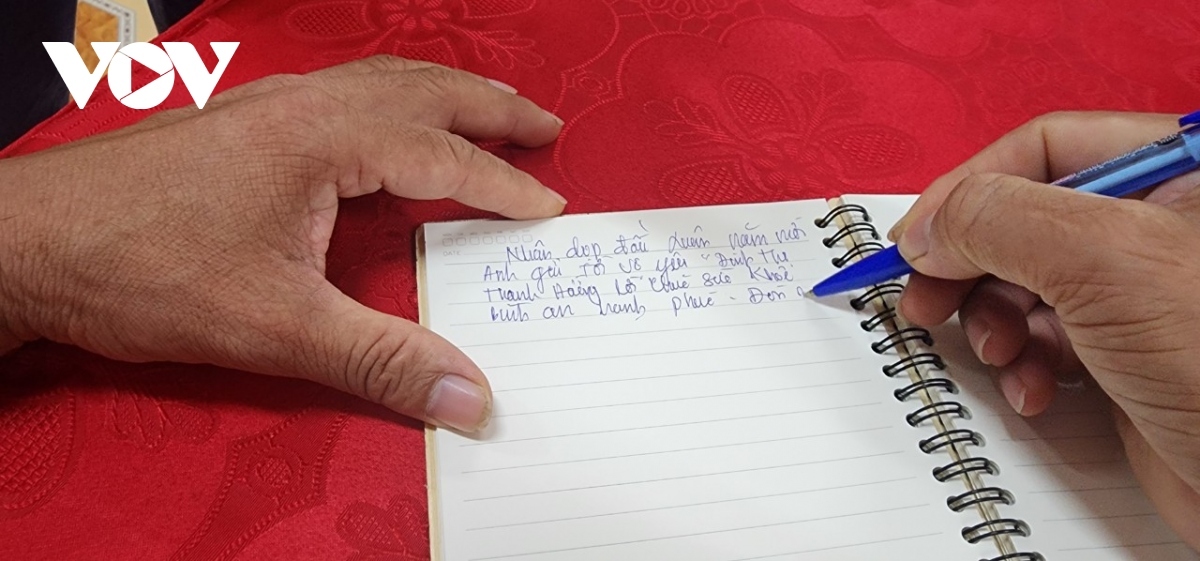 VOV
DATE
Nhân dịp đầu xuân năm mới
Anh gửi tới vợ yêu "Đinh Thị
Thanh Hằng lời chúc sức khỏe
bình an hạnh phúc. Đón